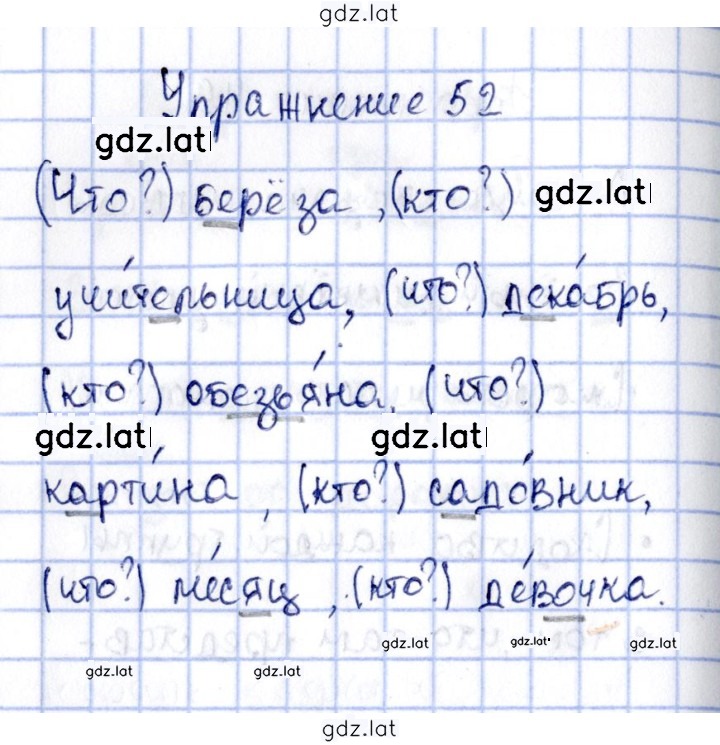 gdz.lat
Упражнение 52
gdz.lat
(Что?) берёза, (кто?) gdz.lat
учи́тельница, (что?) дека́брь,
(кто?) обезья́на, (что?)
gdz.lat gdz.lat
карти́на, (кто?) садо́вник,
(что?) ме́сяц, (кто?) де́вочка.
gdz.lat gdz.lat gdz.lat
gdz.lat gdz.lat
gdz.lat